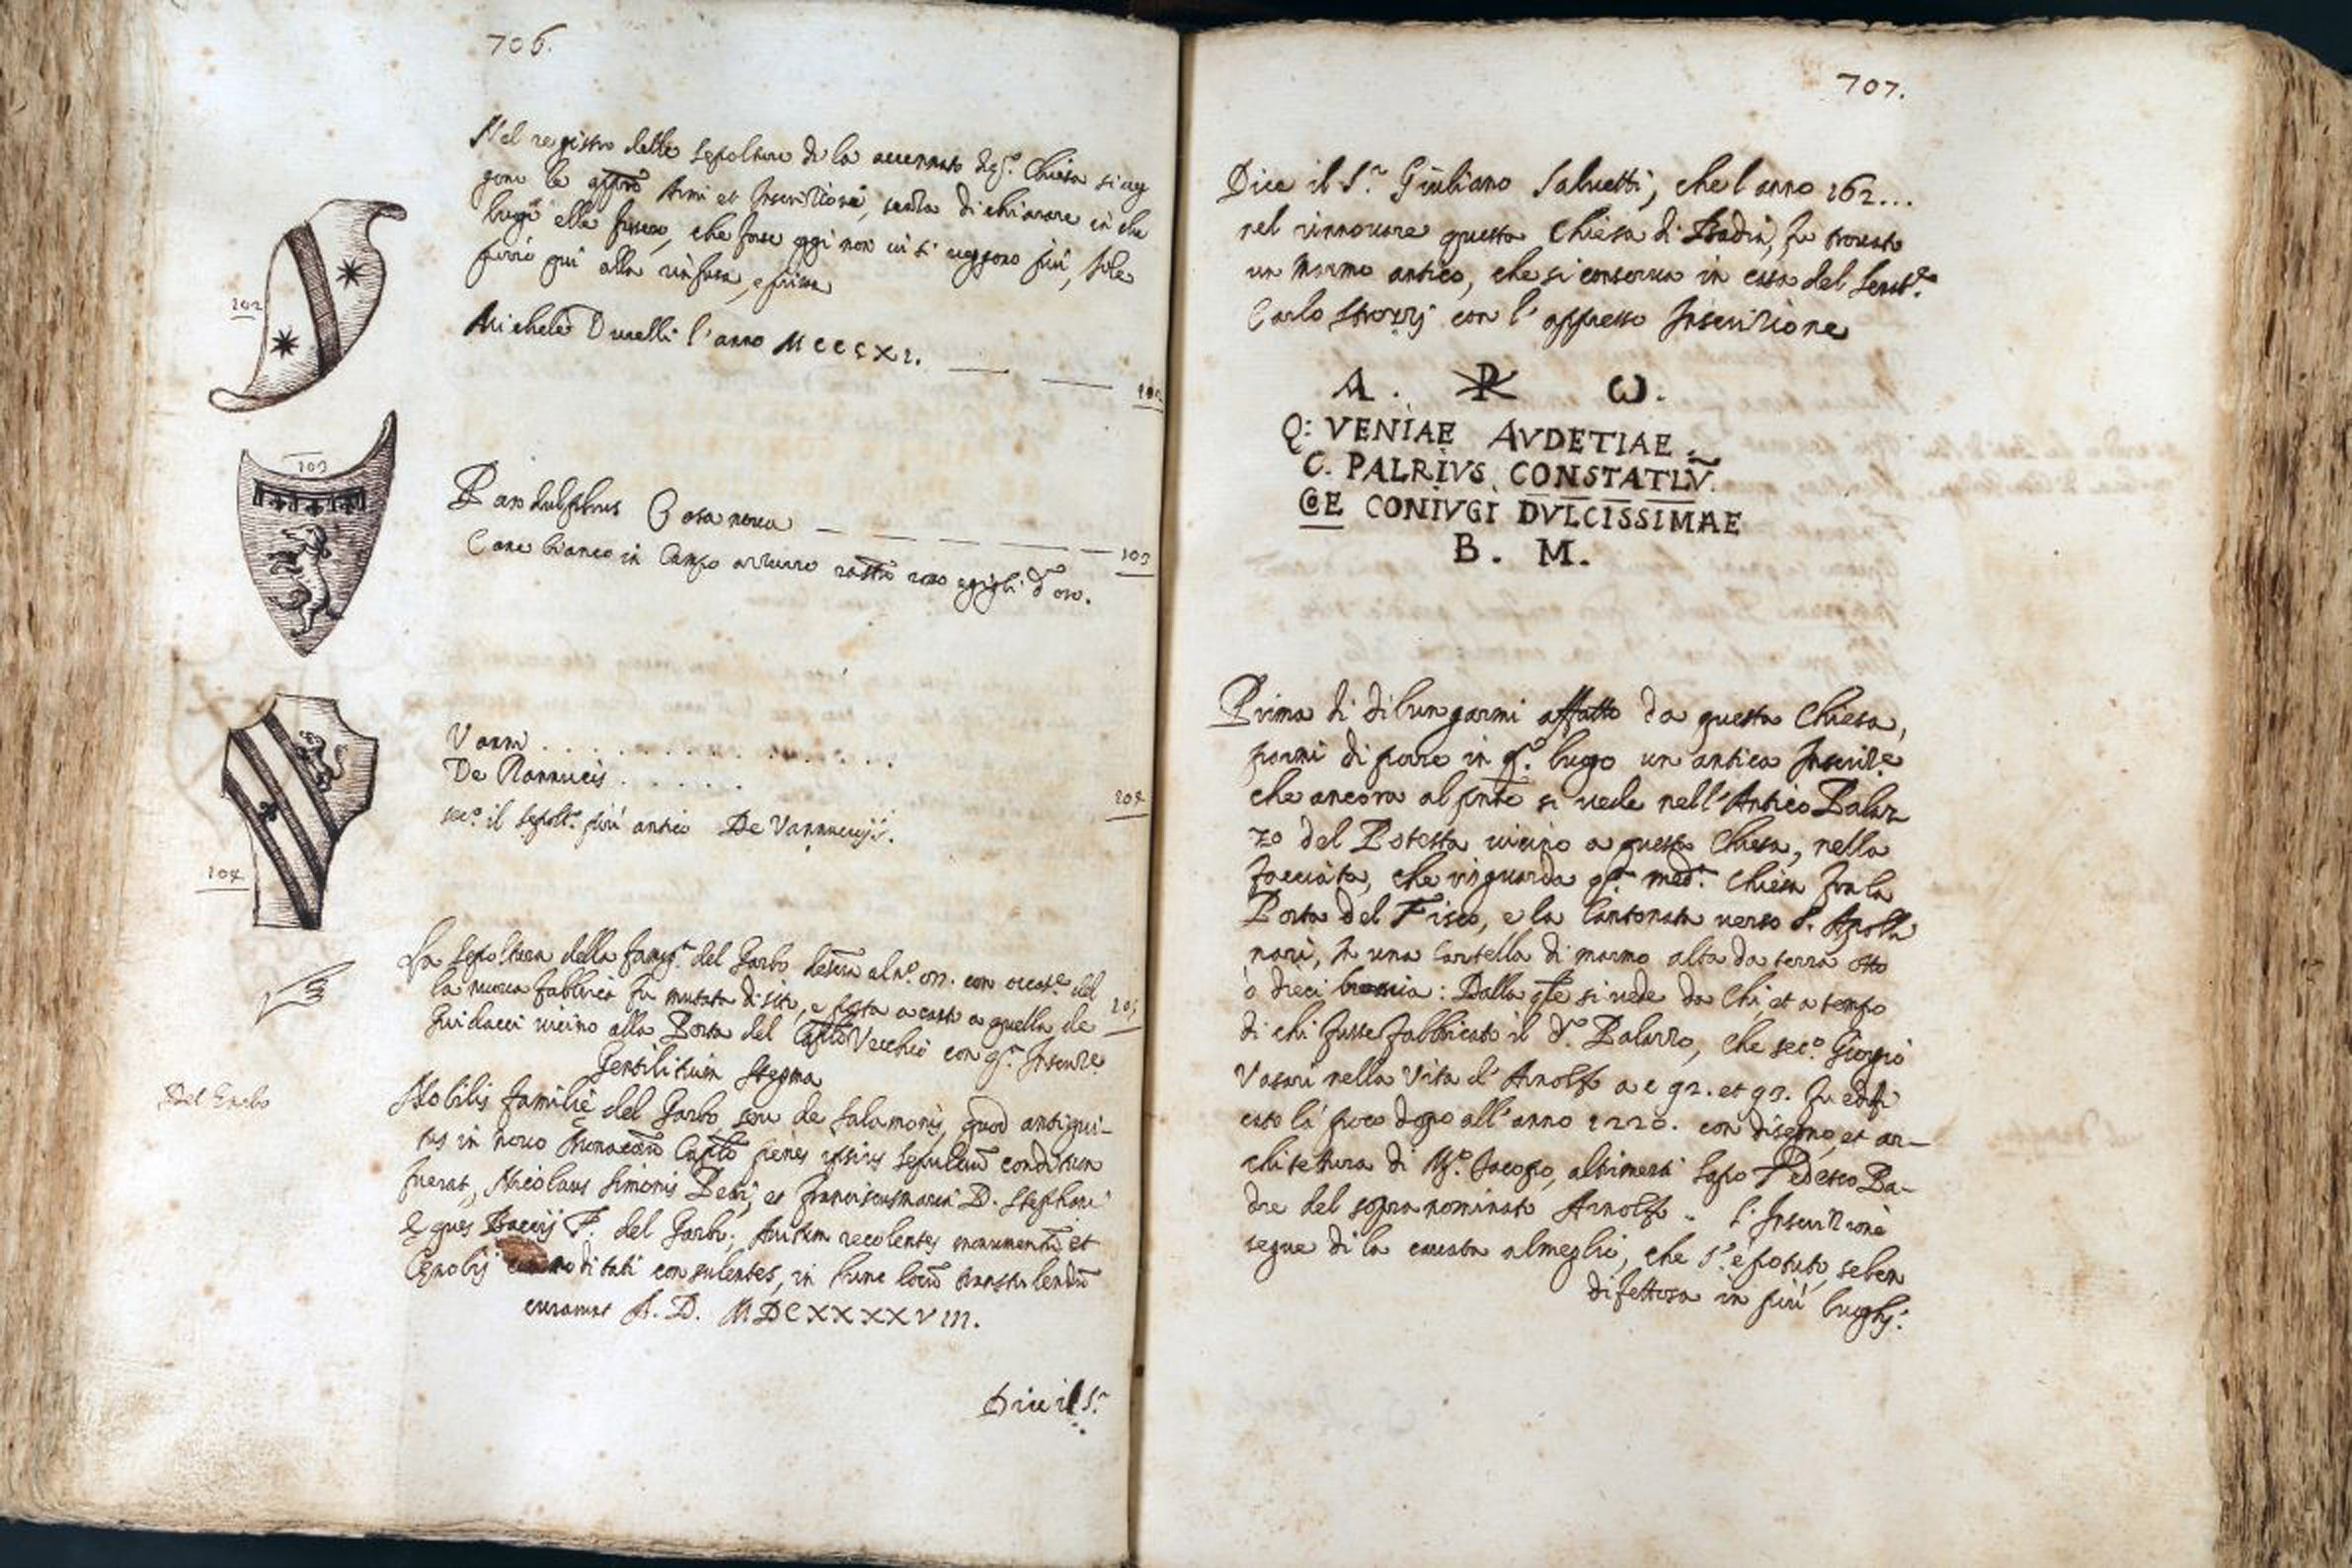 706.
Nel registro delle sepolture di la accennato Chiesa si veg
gono le Armi et Inscrizioni, senza dichiarare in che
luogo elle fussero, che forse oggi non vi si veggono più, sole
porrò qui alla rinfusa, e prima
102
Michele Ducelli l'anno MCCCXI.
102
103
Pandulphus Casanova
103
Cane bianco in Campo azzurro rastro e gigli d'oro.
Vanni
De Nannucis
104
sec.º il sepolt.º più antico De Vannuccijs.
104
La sepoltura della famig.ª del Garbo al nº. con occas.e del
la nuova fabbrica fu mutata di sito, e posta a canto a quella de
105
Guidacci vicino alla Porta del Vecchio con q.ª Inscriz.e
Gentilitium Stegma
Del Garbo
Nobilis familię del Garbo, seu de Salamonis, quod antiqui-
tus in novo penes ipsius conditum
fuerat, Nicolaus Simonis et Franciscusmaria D. Stephani
Eques F. del Garbo; recolentes et
consulentes, in hunc locū
curarunt A. D. MDCXXXXVIII.
Dice il S.r
707.
Dice il S.r Giuliano Salvetti, che l'anno 162...
nel rinnovare questa Chiesa di Badia, fu trovato
un Marmo antico, che si conserva in casa del
Carlo Strozzi con l'appresso Inscrizione
A. ☧ ω.
Q: VENIAE AVDETIAE
C. PALRIVS CONSTATLV̄.
CONIVGI DVLCISSIMAE
B. M.
Prima di dilungarmi affatto da questa Chiesa,
parmi di porre in q.º luogo un antica Inscriz.e
che ancora al pnte si vede nell'Antico Palaz
zo del Potestà vicino a questa Chiesa, nella
facciata, che risguarda med.ª Chiesa fra la
Porta del Fisco, e la Cantonata verso S. Apolli
nari, in una Cartella di marmo alta da terra otto
o dieci braccia: Dalla qle si vede da Chi, et a tempo
di chi fusse fabbricato il d.º Palazzo, che sec.º Giorgio
Vasari nella Vita d'Arnolfo a c 92. et 93. fu edifi
cato là poco dopo all'anno 1220. con disegno, et ar-
chitettura di M.º Jacopo, altrimenti Lapo Tedesco Pa-
dre del sopranominato Arnolfo. L'Inscrizione
segue di la cavata al meglio, che s'è potuto, seben
difettosa in più luoghi: